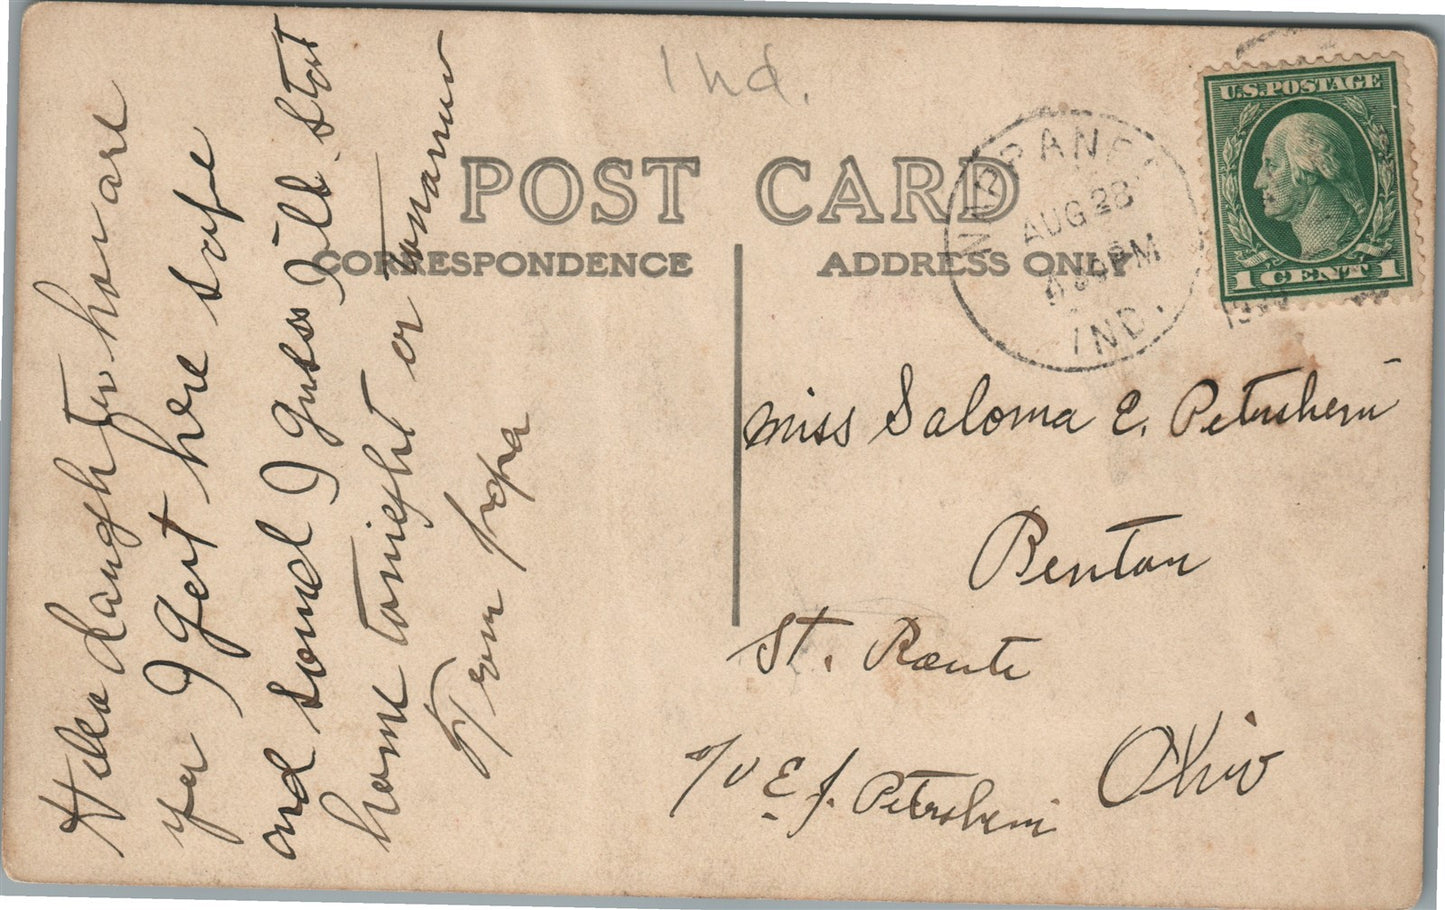 Ind.
POST CARD
CORRESPONDENCE
ADDRESS ONLY
NAPPANEE
AUG 28
PM
IND.
U.S. POSTAGE
1 CENT 1
Hello daughter how are
yer I gert here safe
and sound I guess I'll start
home tonight or tomarrow
From papa
Miss Saloma E. Petersheim
Benton
St. Route
Ohio
c/o E J. Petersheim